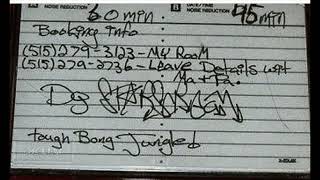 A NOISE REDUCTION 60 min.
B DATE/TIME NOISE REDUCTION 45 min
Booking Info
(515)279-3123 - My Room
(515)279-2736 - Leave Details wit
Ma + Fa.
tough Bong Jungle